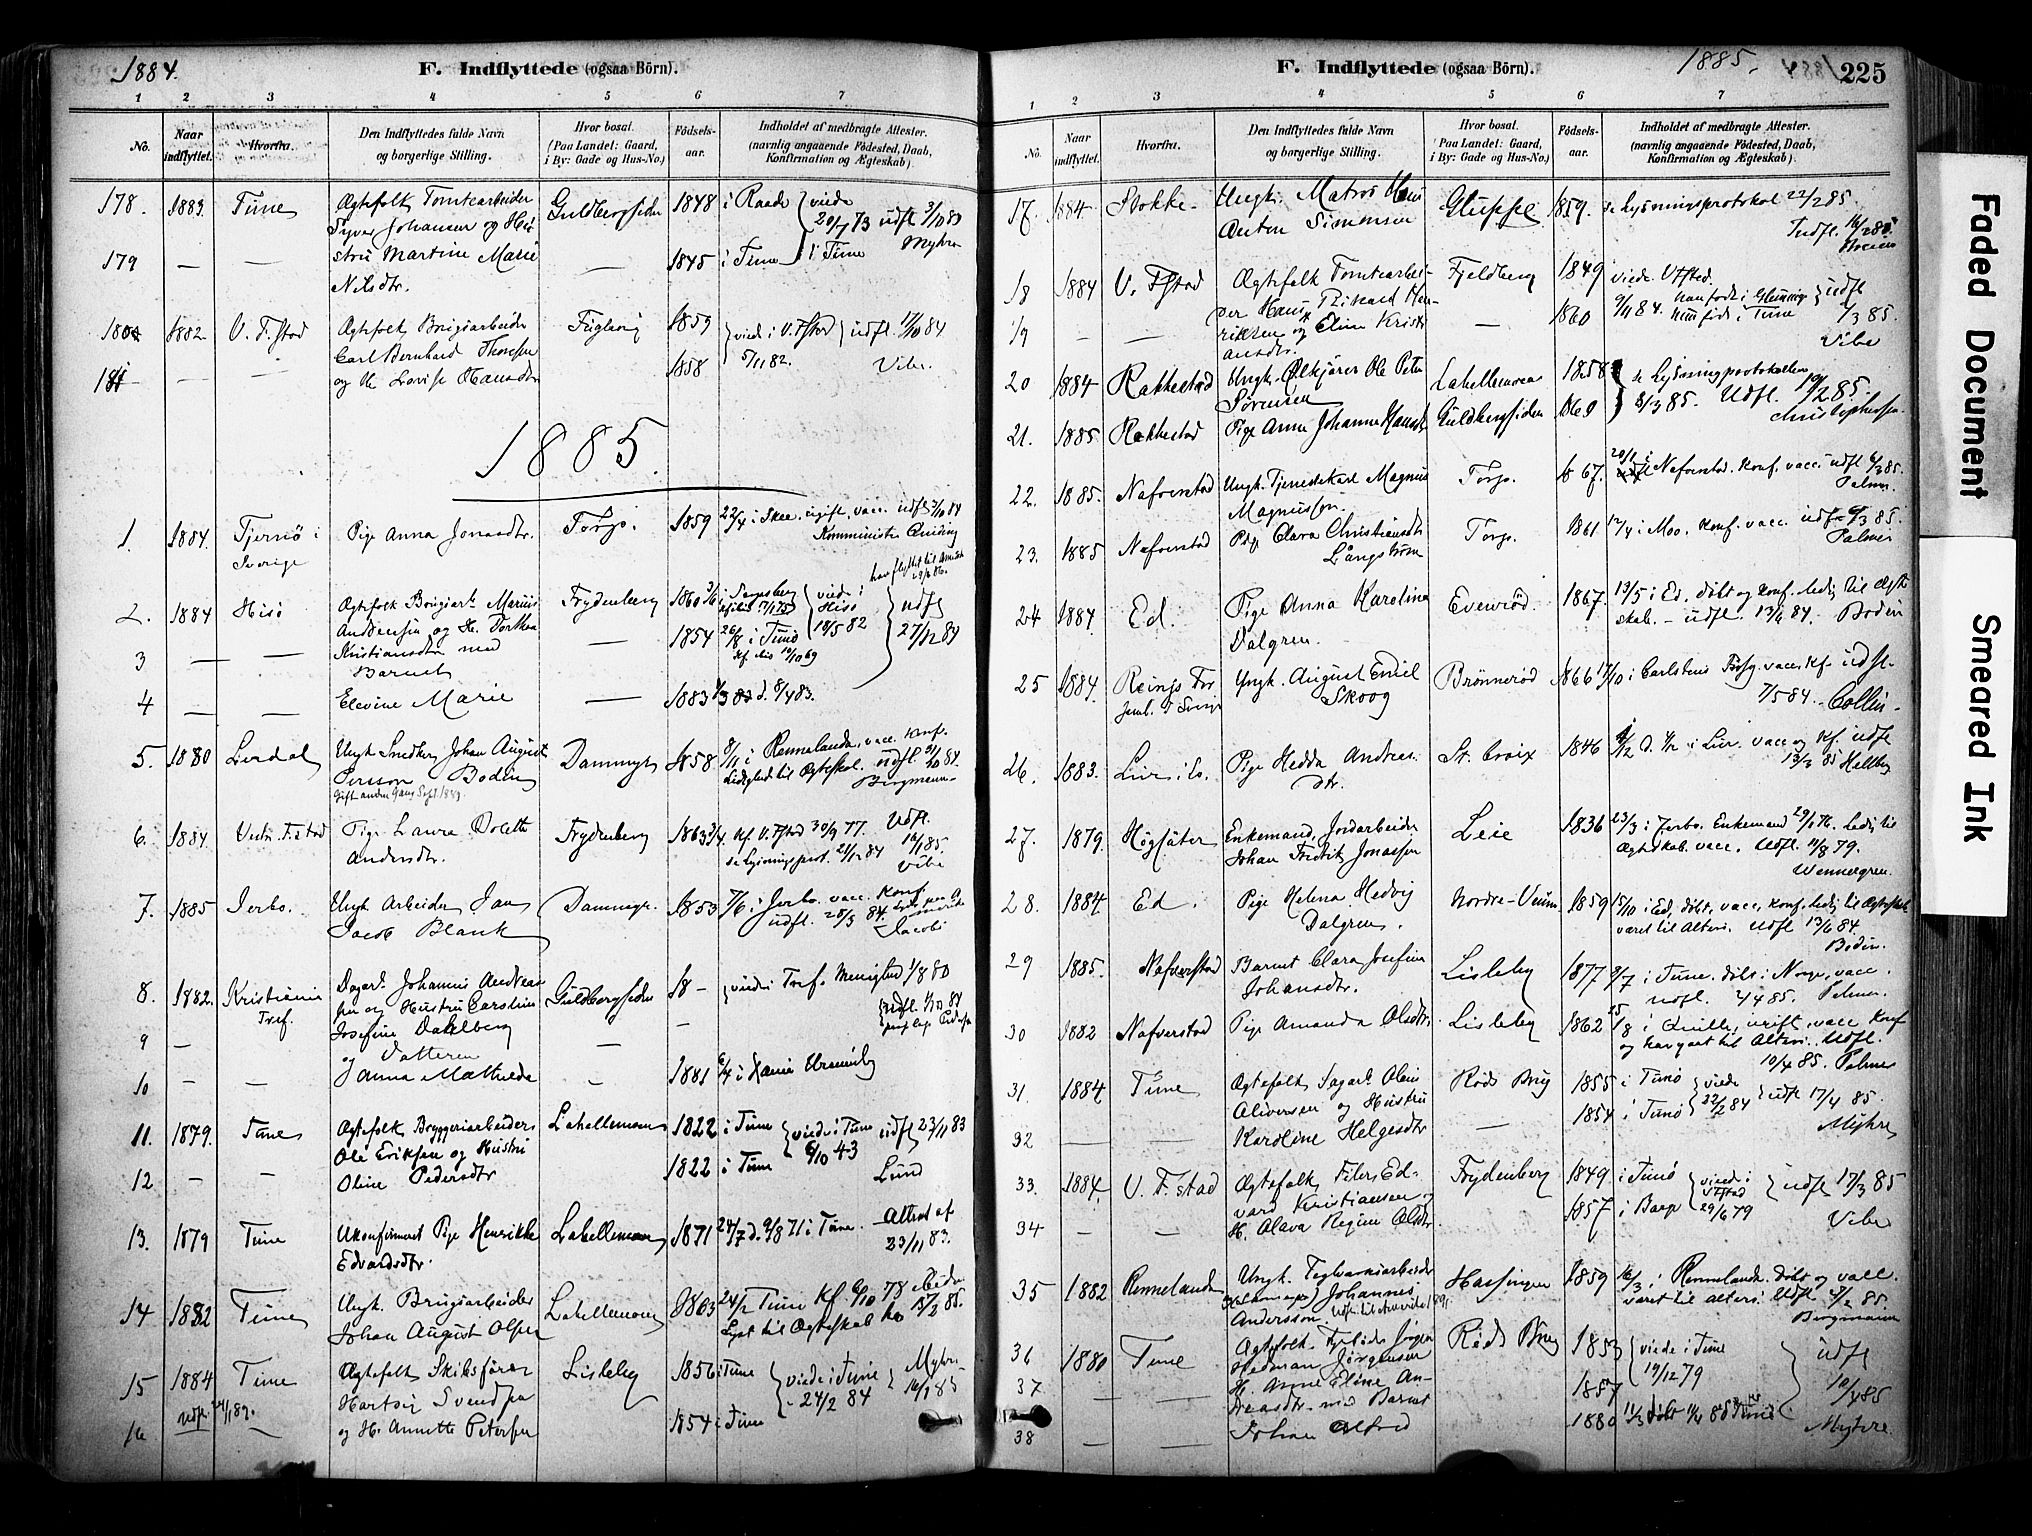 1884.
F. Indflyttede (ogsaa Börn).
1 2 3 4 5 6 7
No.
Naar indflyttet.
Hvorfra.
Den Indflyttedes fulde Navn og borgerlige Stilling.
Hvor bosat. (Paa Landet: Gaard, i By: Gade og Hus-No.)
Fødsels-aar.
Indholdet af medbragte Attester. (navnlig angaaende Fødested, Daab, Konfirmation og Ægteskab).
178. 1883. Tune Ægtefolk Tomtearbeider Guldbergsiden 1848 i Raade viede
Syver Johansen og Hu- 20/7 73 udfl 3/10 83
179 — — stru Martine Marie — 1845 i Tune i Tune Myhre
Nilsdtr.
180 1882 V. F.stad Ægtefolk Brugsarbeider Fuglevig 1859 viede i V. Fstad udfl. 17/10 84
Carl Bernhard Thoresen 5/11 82. Vibe.
181 — — og H. Lovise Hansdtr 1858
1885.
1. 1884. Tjernö i Pige Anna Jonasdtr. Torp. 1859 22/4 i Skee. ugift, vacc. udfl 7/10 84
Sverige Komminister Quiding
2. 1884 Hisö Ægtefolk Brugsarb. Marius Frydenberg 1860 3/6 i Sarpsborg viede i udfl
Andersen og H. Dorthea Hisö
3 — — Kristiansdtr med — 1854 26/8 i Tunö 18/5 82 27/12 84
Barnet
4 — — Elevine Marie — 1883 1/3 83 d. 8/4 83.
5. 1880 Lerdal Ungk Smedsv. Johan August Dammyr 1858 8/11 i Rennelanda, vacc. konf.
Persson Bodin Ledighed til Ægteskab. udfl 31/10 84.
Gift anden Gang Sept. 1889. Bergmann
6. 1884 Vestr. F.stad Pige Laura Dolette Frydenberg 1863 3/4. Kf. V. Fstad 30/9 77. Udfl.
Andersdtr. se Lysningsprot. 21/12 84 16/1 85. Vibe
7. 1885 Jerbo. Ungk Arbeider Jan Dammyr. 1853 7/6 i Jerbo. vacc. Konf.
Jacob Blank udfl. 28/5 84. Jacobi
8. 1882. Kristiania Dagarb. Johannes Andrea- Guldbergsiden 18 — viede i Tref. Menighed 1/8 80
Tref. sen og Hustru Carolina
9 — Josefine Dahlberg — —
og Datteren
10 — — Janna Mathilde — 1881 6/4 i Xania
11. 1879. Tune Ægtefolk Bryggeriarbeider Labellemoen 1822 i Tune viede i Tune udfl 23/11 83
Ole Eriksen og Hustru 6/10 43
12 — — Oline Pedersdtr 1822 i Tune Lund
13. 1879 Tune Ukonfirmeret Pige Henrikke Labellemoen 1871 24/7 d. 9/8 71 i Tune. Attest af
Edvardsdtr. 23/11 83.
14 1882 Tune Ungk. Brugsarbeider Labellemoen 1863 24/2 Tune Kf 6/10 78
Johan August Olsen Lyst til Ægteskab 13/2 85.
15 1884 Tune Ægtefolk Skibsfører Lisleby 1856 i Tune viede i Tune Myhre
udfl. 24/1 89. Hartvig Svendsen 24/2 84 16/1 85
16 og H. Annette Petersen 1854 i Tune
F. Indflyttede (ogsaa Börn).
1885.
225
1 2 3 4 5 6 7
No.
Naar indflyttet.
Hvorfra.
Den Indflyttedes fulde Navn og borgerlige Stilling.
Hvor bosat. (Paa Landet: Gaard, i By: Gade og Hus-No.)
Fødsels-aar.
Indholdet af medbragte Attester. (navnlig angaaende Fødested, Daab, Konfirmation og Ægteskab).
17. 1884 Stokke Ungk. Matros Gluppe 1859. se Lysningsprotokol 22/2 85.
Anton Simonsen Indfl. 16/2 85
18 1884 V. Fstad Ægtefolk Tomtearbei- Fjeldberg 1849 viede V. Fstad. udfl
der Hans Rikard Hen- 9/11 84. han født i Glemminge
19 — — riksen og Eline Kristi- — 1860 hun født i Tune 1/3 85.
ansdtr. Vibe
20 1884 Rakkestad Ungk. Ølkjører Ole Peter Labellemoen 1858 se Lysningsprotokollen
Sørensen 8/3 85. Udfl. 19/2 85.
21. 1885 Rakkestad Pige Anna Johanne Hansdtr Guldbergsiden 1860 Christophersen
22. 1885. Nafverstad Ungk. Tjenestekarl Magnus Torp. 1867. 20/1 i Nafverstad. Konf. vacc. udfl 6/3 85.
Magnusson. Palmer.
23. 1885 Nafverstad Pige Clara Christiansdtr Torp. 1861 17/4 i Moo. Konf. vacc. udfl. 6/3 85.
Långström Palmer
24 1884 Ed. Pige Anna Karolina Evenrød. 1867. 13/5 i Ed. döbt og konf. ledig til Ægte-
Dalgren. skab. – udfl. 13/6 84. Bodin
25 1884. Reings For Ungk. August Emil Brønnerød 1866 17/10 i Carlstens Förs. vacc. Kf. udfl.
Skoog 7/5 84. Collin
26. 1883. Lur i Pige Hedda Andreas- St. Croix 1846 d. i Lur. vacc og Kf. udfl
dtr. 13/3 85 Hellberg
27. 1879. Högsäter Enkemand, Jordarbeider Leie 1836 23/3 i Jerbo. Enkemand ledig til
Johan Fredrik Jonassen Ægteskab. vacc. Udfl. 11/8 79.
Wennergren.
28. 1884 Ed Pige Helena Hedvig Nordre-Veum 1859 15/10 i Ed, döbt, vacc, konf. ledig til Ægteskab
Dalgren. været til Alters. udfl 13/6 84.
Bodin.
29 1885. Nafverstad Barnet Clara Josefina Lisleby 1877 9/7 i Tune. döbt i Norge, vacc.
Johansdtr. udfl. 7/4 85. Palmer.
30 1882 Nafverstad Pige Amanda Olsdtr Lisleby 1862 25/8 i Quille, ugift, vacc, Konf
og har gaat til Alters. Udfl.
10/4 85. Palmer
31. 1884 Tune Ægtefolk Sagarb. Olaus Röds Brug 1855 i Tunö viede
Oliversen og Hustru 22/2 84 udfl 17/4 85.
32 — Karoline Helgesdtr — 1854 i Tunö Myhre
33. 1884. V. F.stad Ægtefolk Filer Ed- Frydenberg 1849 i Tunö viede i V Fstad udfl 17/3 85
vard Kristiansen og 1857 i Borge 29/6 79
34 — — H. Olava Regine Olsdtr Vibe
35 1882 Rennelanda Ungk. Teglverksarbeider Hassingen 1859 16/3 i Rennelanda. döbt og vacc.
Johannes været til alters. Udfl. 4/2 85.
Andersson. Bergmann
36 1880 Tune Ægtefolk. Fyrböder Jørgen Röds Brug 1853 viede i Tune udfl
Hedman Jørgensen 19/12 79
37 — — H. Anne Eline An- 1857 10/4 85
dreasdtr. med Barnet
38 — — Johan Alfred 1880 11/3 döbt Tune Myhre
Faded Document
Smeared Ink